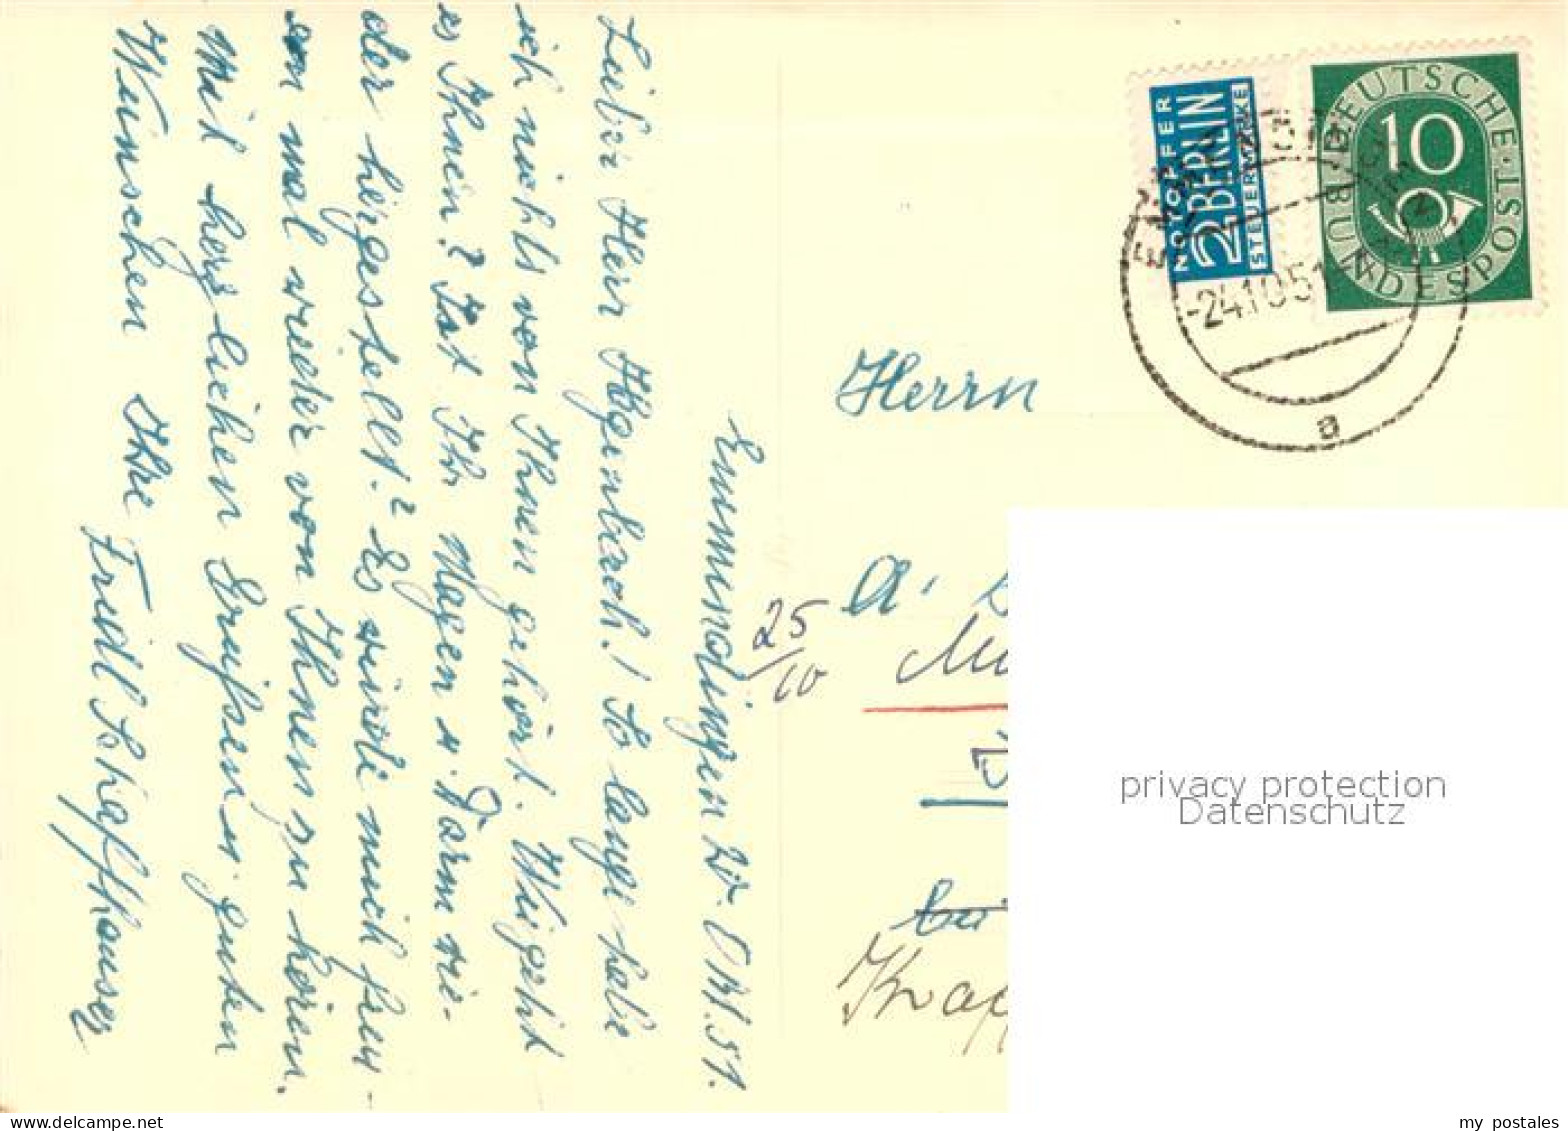 Emmendingen 20. Okt. 51.
Lieber Herr Hagenbach! So lange habe
ich nichts von Ihnen gehört. Wie geht
es Ihnen? Ist Ihr Magen u. Darm wie-
der hergestellt? Es würde mich freu-
en mal wieder von Ihnen zu hören.
Mit herzlichen Grüssen u. guten
Wünschen Ihre
Friedl Schaffhauser
NOTOPFER
2 BERLIN
STEUERMARKE
DEUTSCHE BUNDESPOST
10
-24.10.51
a
Herrn
25/10
privacy protection
Datenschutz
my postales